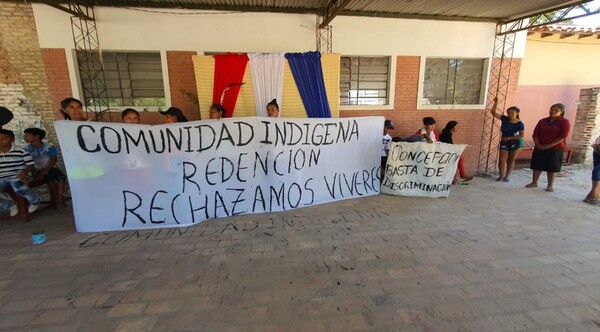 COMUNIDAD INDIGENA
REDENCION
RECHAZAMOS VIVERES
CONCEPCION
BASTA DE
DISCRIMINACION